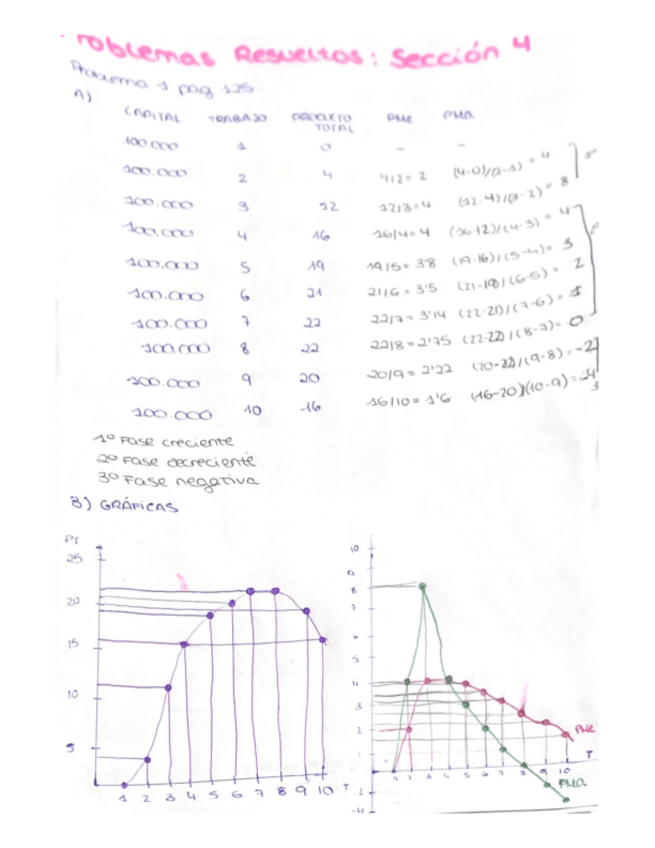 Problemas Resueltos: Sección 4
Problema 1 pag 125
A)
CAPITAL TRABAJO PRODUCTO TOTAL PMe PMa
100.000 1 0 - -
100.000 2 4 4/2= 2 (4-0)/(2-1) = 4
100.000 3 12 12/3=4 (12-4)/(3-2) = 8
100.000 4 16 16/4= 4 (16-12)/(4-3) = 4
100.000 5 19 19/5= 3'8 (19-16)/(5-4)= 3
100.000 6 21 21/6= 3'5 (21-19)/(6-5) = 2
100.000 7 22 22/7= 3'14 (22-21)/(7-6) = 1
100.000 8 22 22/8= 2'75 (22-22)/(8-7)= 0
100.000 9 20 20/9= 2'22 (20-22)/(9-8) = -2
100.000 10 16 16/10= 1'6 (16-20)(10-9)= -4
1º Fase creciente
2º Fase decreciente
3º Fase negativa
B) GRÁFICAS
PT
25
20
15
10
5
1 2 3 4 5 6 7 8 9 10 T
10
9
8
7
6
5
4
3
2
1
-2
-4
1 2 3 4 5 6 7 8 9 10 T
PMe
PMa